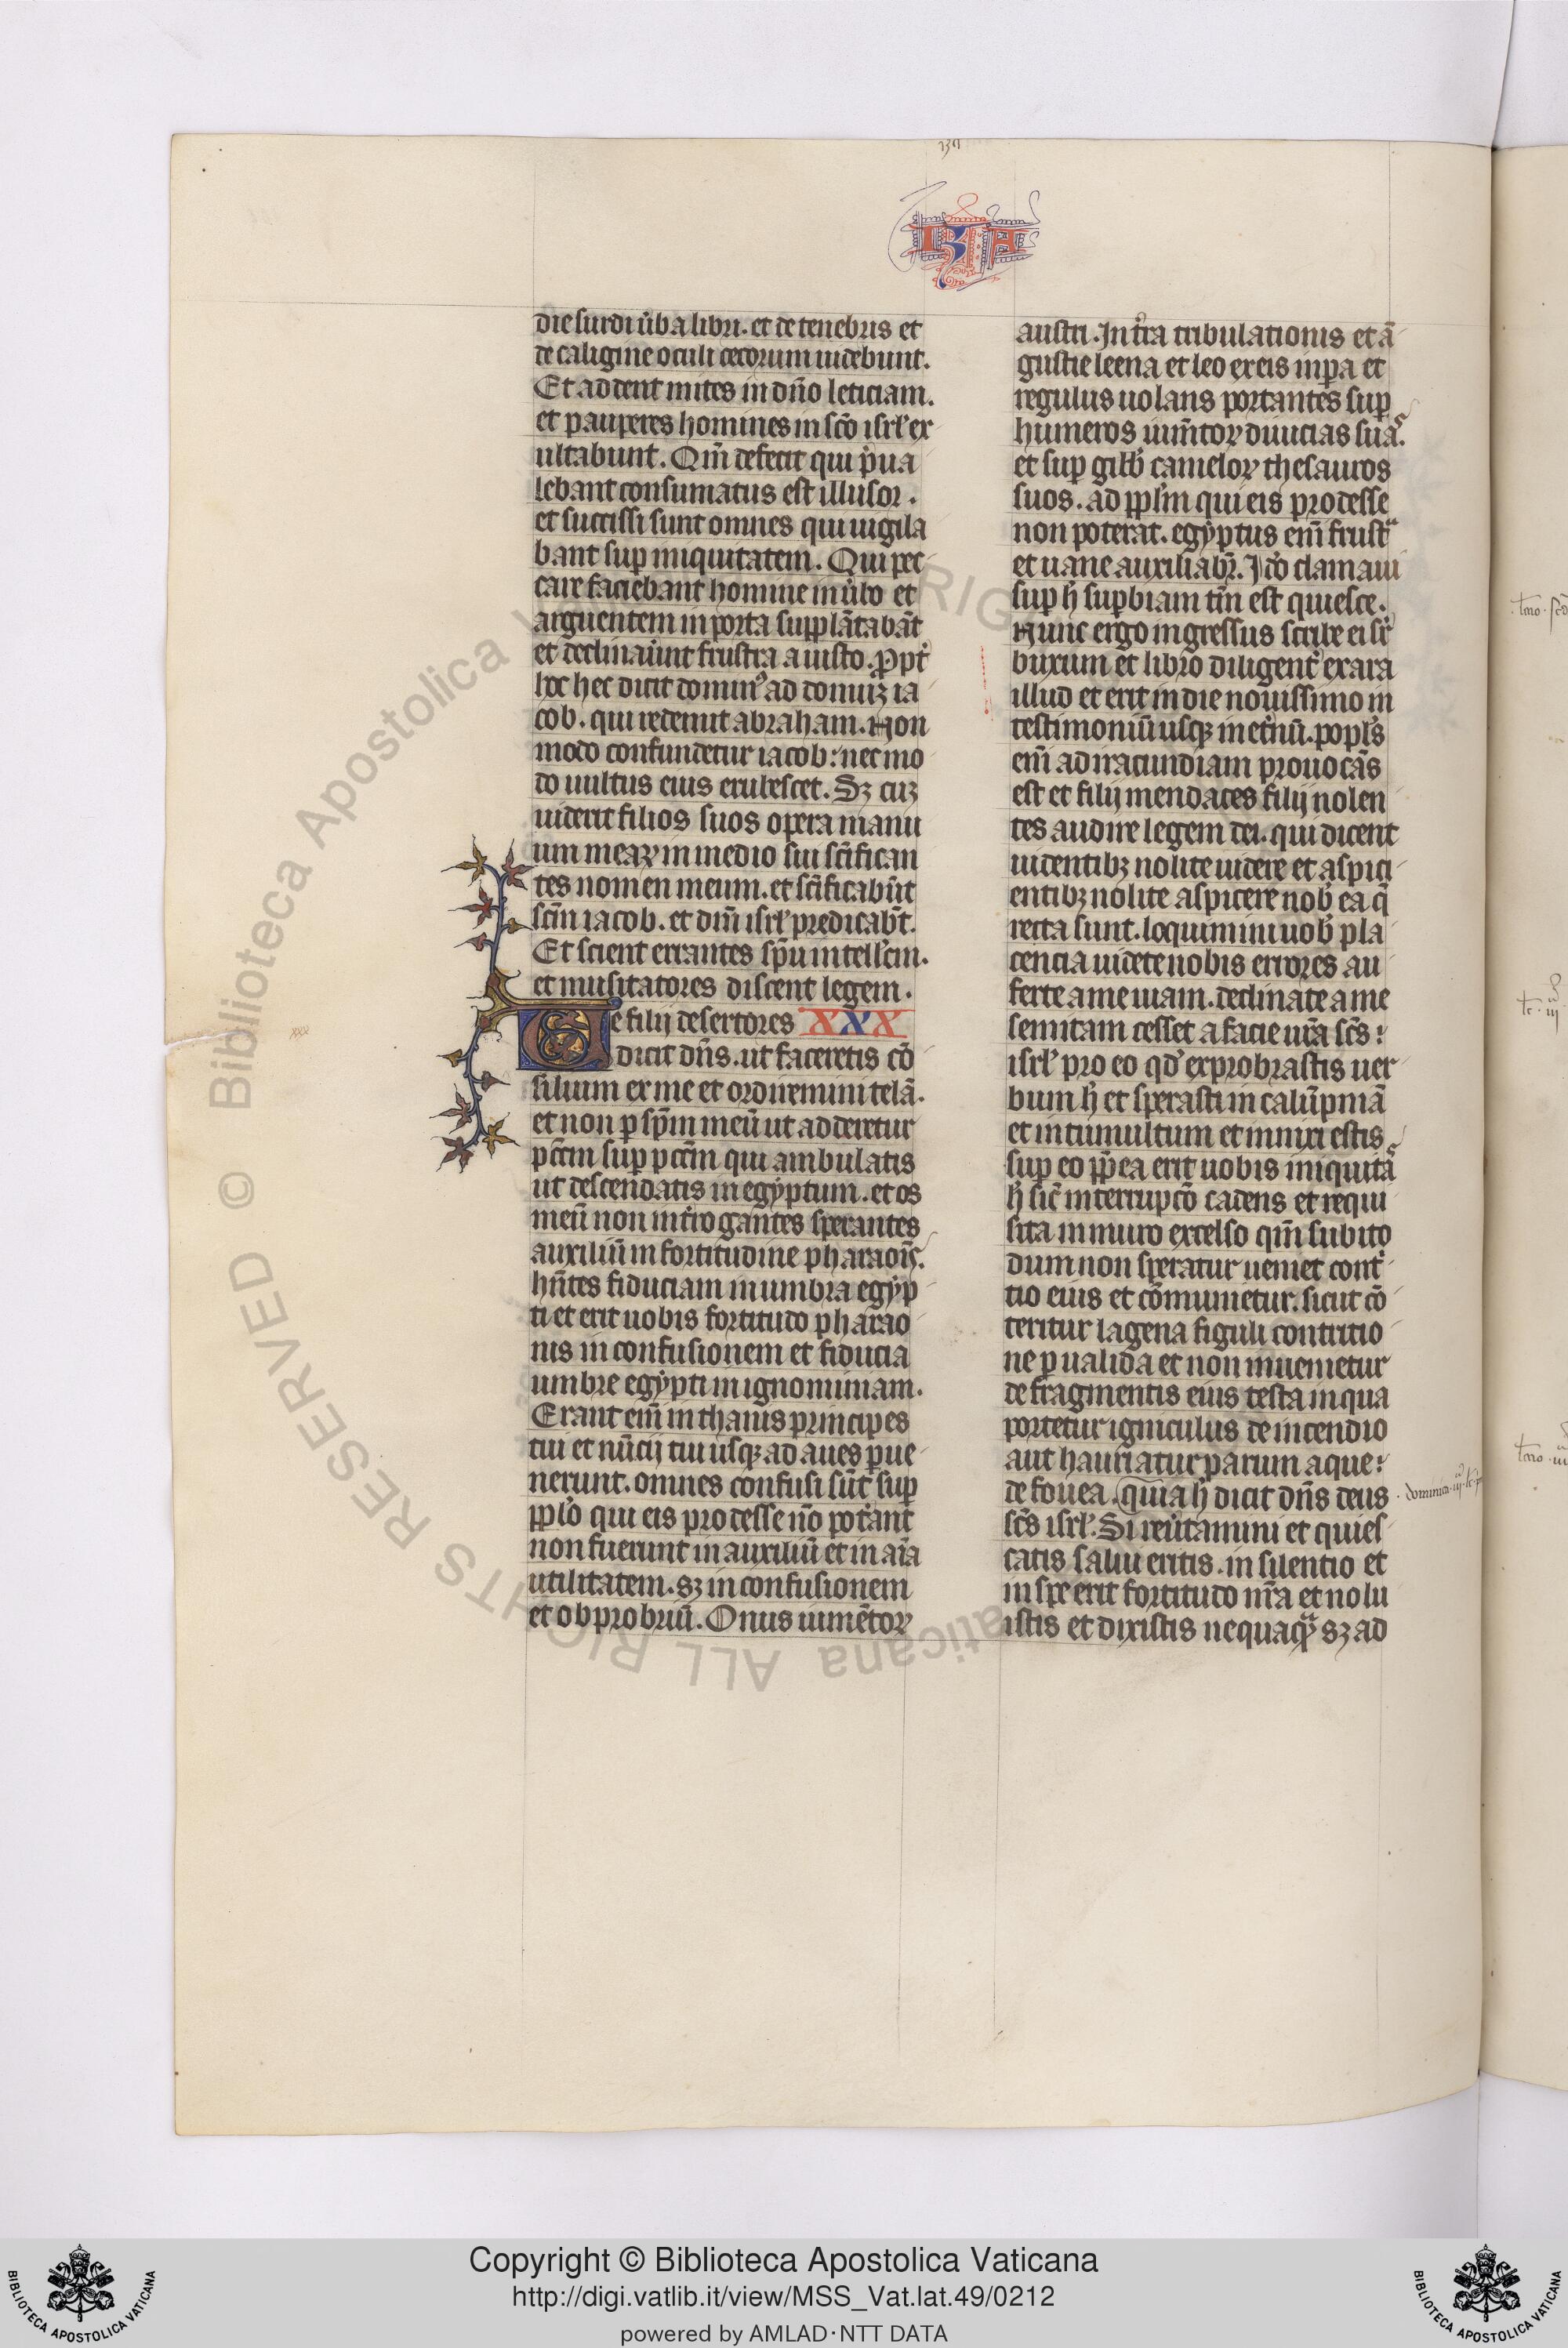 RIA
die surdi ũba libri. et de tenebris et
de caligine oculi cecorum uidebunt.
Et addent mites in dño leticiam.
et pauperes homines in sc̃o isrl' ex
ultabunt. Qm̃ defecit qui p̃ua
lebant consumatus est illusor.
et succissi sunt omnes qui uigila
bant sup iniquitatem. Qui pec
care faciebant homine in ũbo et
arguentem in porta supplãtabãt
et declinaũunt frustra a iusto. ꝓpt̃
hoc hec dicit domin⁹ ad domuꝫ ia
cob. qui redemit abraham. Non
modo confundetur iacob: nec mo
do uultus eius erubescet. Sꝫ cuꝫ
uiderit filios suos opera manu
um meaꝝ in medio sui sc̃ifican
tes nomen meum. et sc̃ificabũt
sc̃m iacob. et dm̃ isrl' predicabt̃.
Et scient errantes sp̃u intell'cm.
et musitatores discent legem.
Ue filij desertores XXX
dicit dñs. ut faceretis cõ
silium ex me et ordiremini telã.
et non p sp̃m meũ ut adderetur
pc̃cm sup pc̃cm qui ambulatis
ut descendatis in egyptum. et os
meũ non int̃rogantes sperantes
auxiliũ in fortitudine pharaoĩs.
hñtes fiduciam in umbra egyp
ti et erit uobis fortitudo pharao
nis in confusionem et fiducia
umbre egypti in ignominiam.
Erant eĩm in thanis principes
tui et nũcij tui usqꝫ ad anes pue
nerunt. omnes confusi sũt sup
pplo qui eis prodesse nõ pot̃ant
non fuerunt in auxiliũ et in aĩa
utilitatem. sꝫ in confusionem
et obprobriũ. Onus iumẽtoꝝ
austri. In t̃ra tribulationis et ã
gustie leena et leo ex eis inpa et
regulus uolans portantes sup
humeros ium̃toꝝ diuicias suas.
et sup gibb' cameloꝝ thesauros
suos. ad ppl'm qui eis prodesse
non poterat. egyptus eñi frustᵃ
et uane auxiliabr̃. Ido̾ clamaui
sup h̾ supbiam tm̃ est quiesce.
Nunc ergo ingressus scribe ei sr̃
buxum et libro diligent̃ exara
illud et erit in die nouissimo in
testimoniũ usqꝫ in et̃nũ. popl's
eñi ad iracundiam prouocãs
est et filij mendaces filij nolen
tes audire legem dei. qui dicent
uidentibꝫ nolite uidere et aspici
entibꝫ nolite aspicere nob' ea q̃
recta sunt. loquimini nob' pla
cencia uidete nobis errores au
ferte a me uiam. declinate a me
semitam cesset a facie nr̃a sc̃s:
isrl' pro eo qd' exprobrastis uer
bum h̾ et sperasti in calũpniã
et in tumultum et innixi estis
sup eo pp̃ea erit uobis iniquitas
h̾ sic̃ interrupcõ cadens et requi
sita in muro excelso qm̃ subito
dum non speratur ueniet cont̃
tio eius et cõmunietur. sicut cõ
teritur lagena figuli contritio
ne pualida et non inuenietur
de fragmentis eius testa in qua
portetur igniculus de incendio
aut hauriatur parum aque:
de fouea. quia h̾ dicit dñs deus
sc̃s isrl'. Si reũtamini et quies
catis salui eritis. in silentio et
in spe erit fortitudo nr̃a et nolu
istis et dixistis nequaqᵃꝫ sꝫ ad
xxx
Biblioteca Apostolica Vaticana ALL RIGHTS RESERVED ©
BIBLIOTECA APOSTOLICA VATICANA
Copyright © Biblioteca Apostolica Vaticana
http://digi.vatlib.it/view/MSS_Vat.lat.49/0212
powered by AMLAD·NTT DATA
BIBLIOTECA APOSTOLICA VATICANA